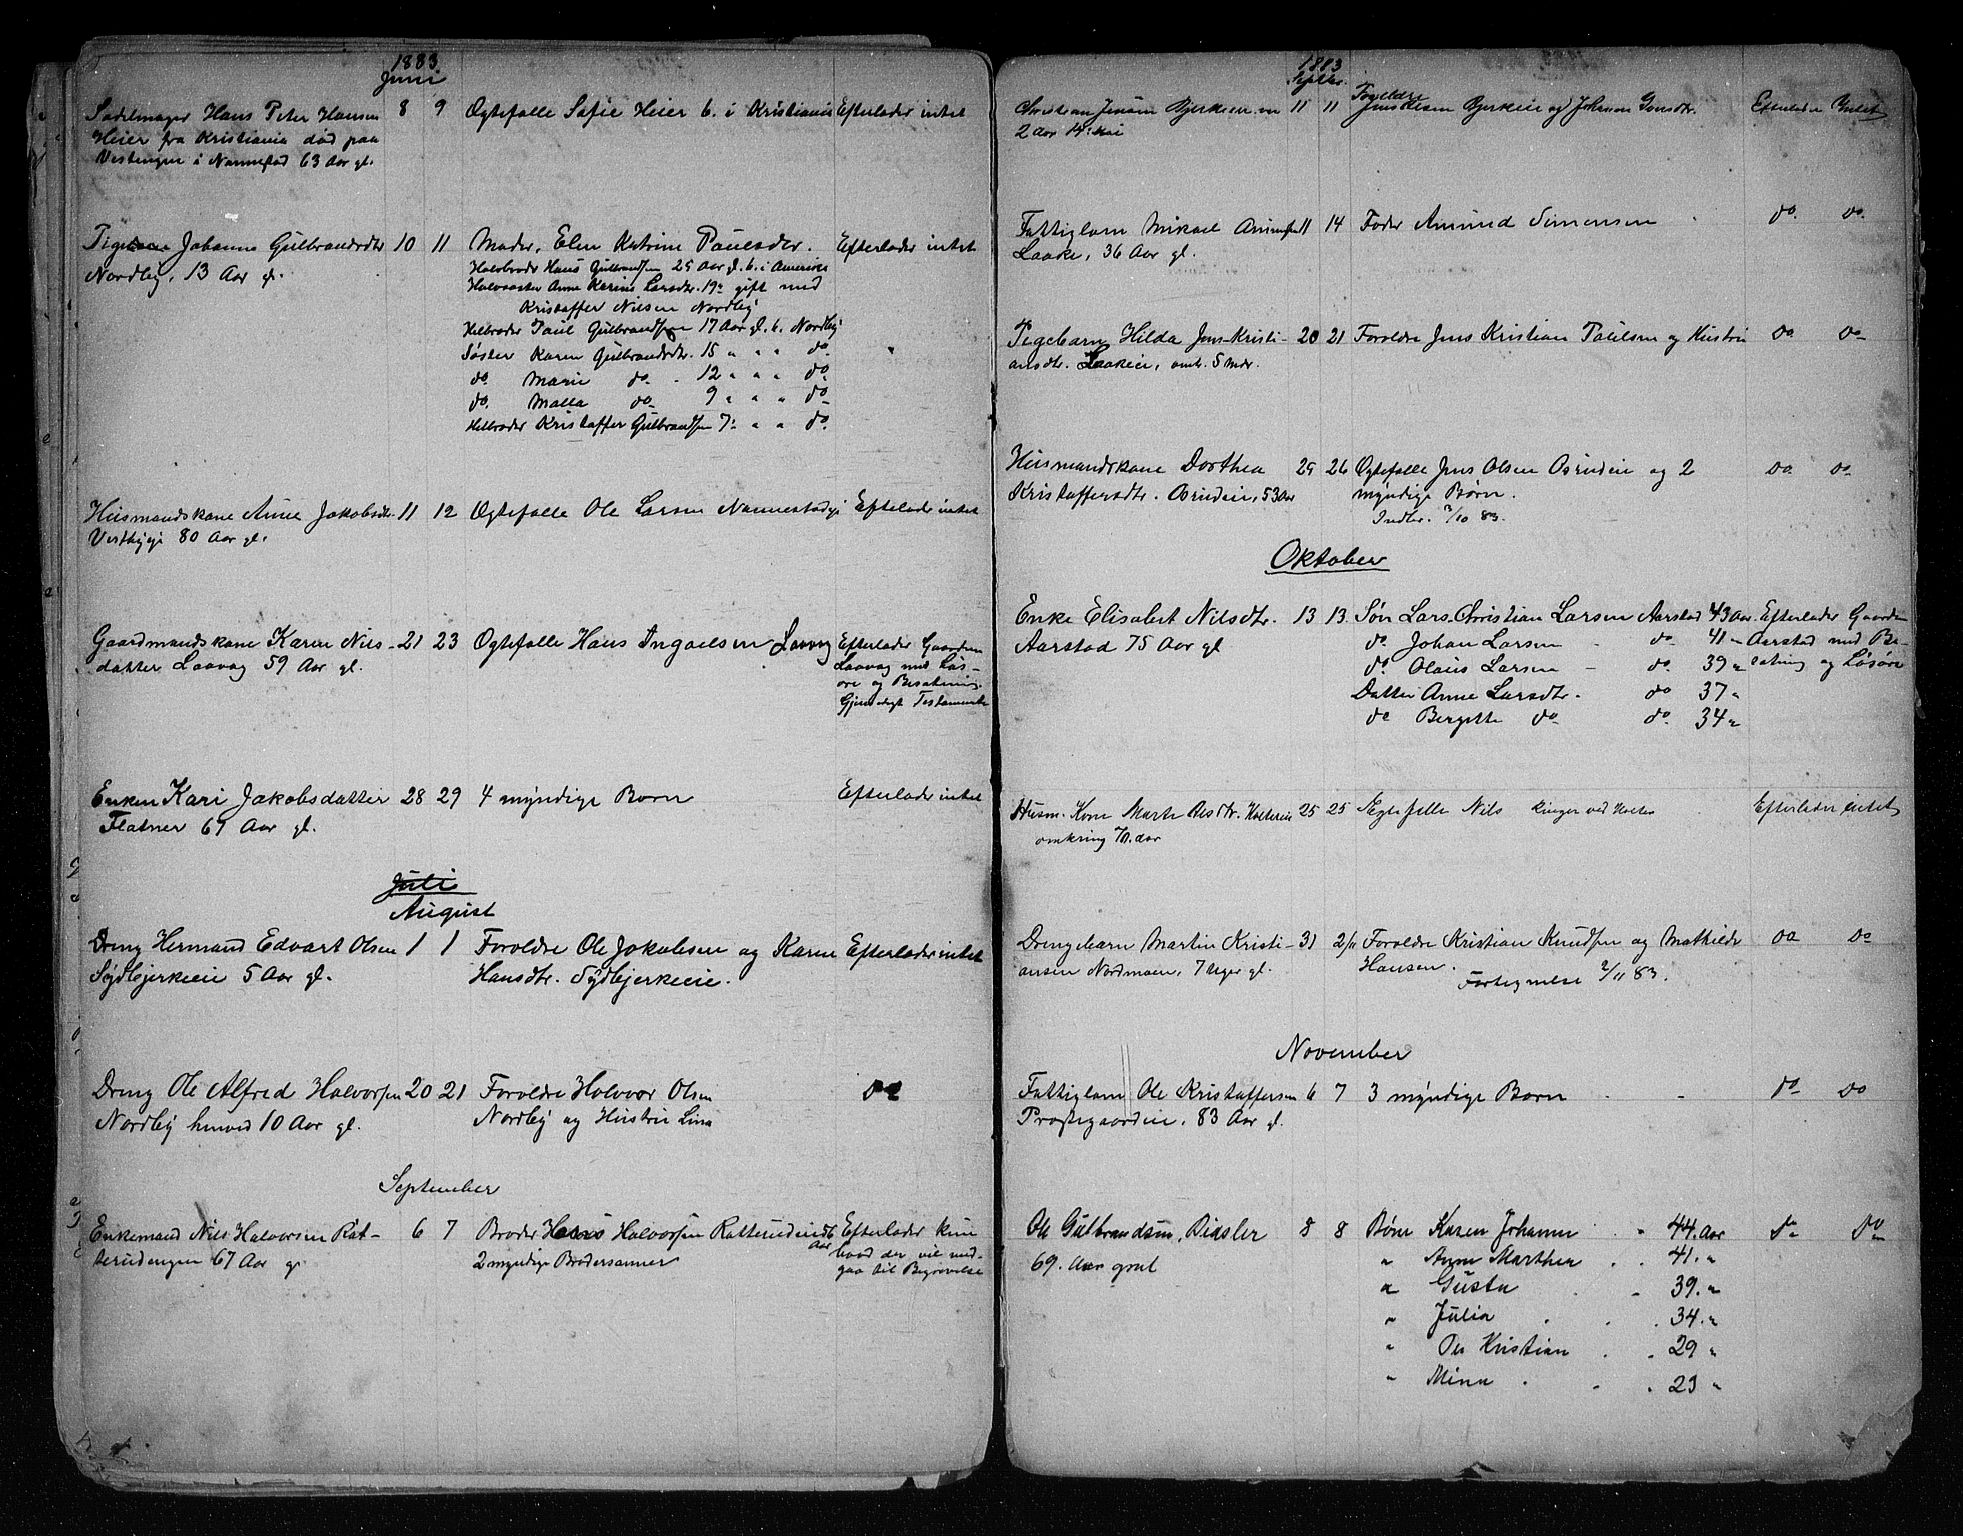 1883
Juni
Sadelmager Hans Peter Hansen 8 9 Ogtefalle Safie Heier b. i Kristiania Efterlader intet
Heier fra Kristiania død paa
i Nannestad 63 Aar gl.
Johanne Gulbrandsdtr 10 11 Moder, Elen Katrine Paulsdtr. Efterlader intet
Nordby, 13 Aar gl.
Halvbroder Hans Gulbrandsen 25 Aar gl. b. i Amerika
Halvsøster Anne Karine Larsdtr. 19 " gift med
Kristaffer Nilsen Nordby
Helbroder Paul Gulbrandsen 17 Aar gl. b. Nordby
Søster Karen Gulbrandsdtr. 15 " " " do.
do. Marie do. 12 " " " do.
do. Malla do. 9 " " " do.
Helbroder Kristaffer Gulbrandsen 7 " " " do.
Husmandskone Anne Jakobsdtr. 11 12 Ogtefalle Ole Larsen Efterlader intet
80 Aar gl.
Gaardmandskone Karen Nils- 21 23 Ogtefalle Hans Laavag Efterlader Gaarden
datter Laavag 59 Aar gl. Laavag med Løs-
øre og Besætning.
Gjensidigt Testamente
Enken Kari Jakobsdatter 28 29 4 myndige Børn Efterlader intet
Flatner 67 Aar gl.
Juli
August
Dreng Hermand Edvart Olsen 1 1 Foroldre Ole Jakobsen og Karen Efterlader intet
Sydbjerkeie 5 Aar gl. Hansdtr. Sydbjerkeie.
Dreng Ole Alfred Halvorsen 20 21 Foroldre Halvor Olsen do
Nordby henved 10 Aar gl. Nordby og Hustru Lina
September
Enkemand Nils Halvorsen Rat- 6 7 Broder Hans Halvorsen Aar Efterlader kun
terudengen 67 Aar gl 2 myndige Brodersønner hvad der vil med-
gaa til Begravelse
1883
Septbr.
Bjerkeie 11 11 Foreldre Bjerkeie og Efterlader Intet
2 Aar
Fattiglem Mikael 11 14 Fader Amund Simensen do. do.
Laake, 36 Aar gl.
Pigebarn Hilda Jens-Kristi- 20 21 Foroldre Jens Kristian Paulsen og Hustru do do
ansdtr. Laakeie, omtr. 5 Mdr.
Husmandskone Dorthea 25 26 Ogtefalle Jens Olsen Asrudeie og 2 do do
Kristaffersdtr. Asrudeie, 53 Aar myndige Børn.
Indbr. 3/10 83.
Oktober
Enke Elisabet Nilsdtr. 13 13. Søn Lars Christian Larsen Aarstad 43 Aar Efterlader Gaarden
Aarstad 75 Aar gl do. Johan Larsen do. 41 " Aarstad med Be-
do. Olaus Larsen do. 39 " sætning og Løsøre
Datter Anne Larsdtr. do 37 "
do Bergitte do do. 34 "
Husm. Kone Marte 25 25 Ægtefelle Nils Ringer ved Holter Efterlader intet
omkring 70. aar
Drengebarn Martin Kristi- 31 2/11 Foroldre Kristian Knudsen og Mathilde do do
ansen Nordmoen, 7 Uger gl. Hansen.
Fortegnelse 2/11 83.
November
Fattiglem Ole Kristaffersen 6 7 3 myndige Børn do do
Prostegaardeie, 83 Aar gl.
Ole Gulbrandsen, 8 8 Børn Karen Johanne 44 Aar do do
69. Aar gml " Anne Marthea 41. "
" Gusta 39. "
" Julia 34. "
" Ole Kristian 29 "
" Mina 23 "